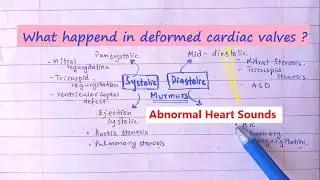 What happend in deformed cardiac valves ?
Pansystolic
Mid - diastolic
• Mitral
regurgitation
• Tricuspid
regurgitation
• Ventricular Septal
defect.
Systolic
Diastolic
Murmurs
• Mitral Stenosis.
• Tricuspid
Stenosis
• ASD
Abnormal Heart Sounds
Ejection
Systolic
• Aortic stenosis
• Pulmonary stenosis
regurgitation.